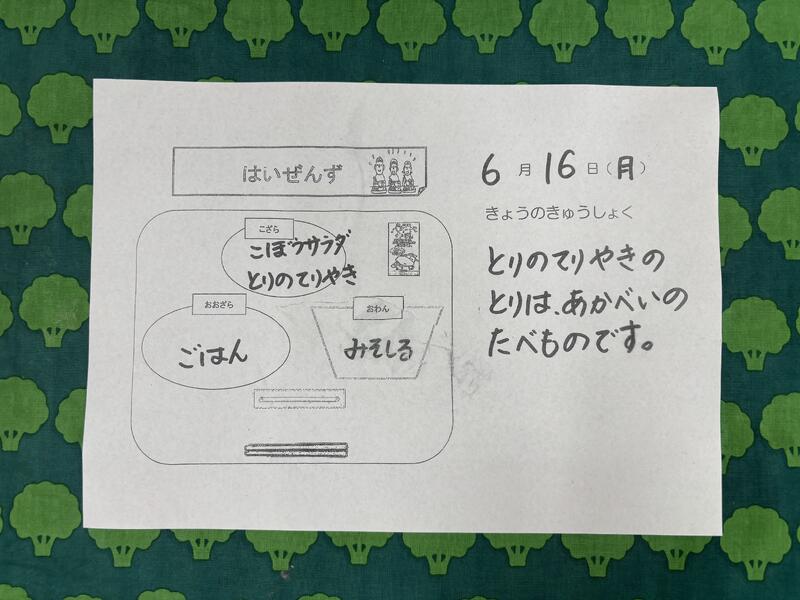 はいぜんず
こざら
こぼうサラダ
とりのてりやき
おおざら
ごはん
おわん
みそしる
6月16日(月)
きょうのきゅうしょく
とりのてりやきの
とりは、あかべいの
たべものです。